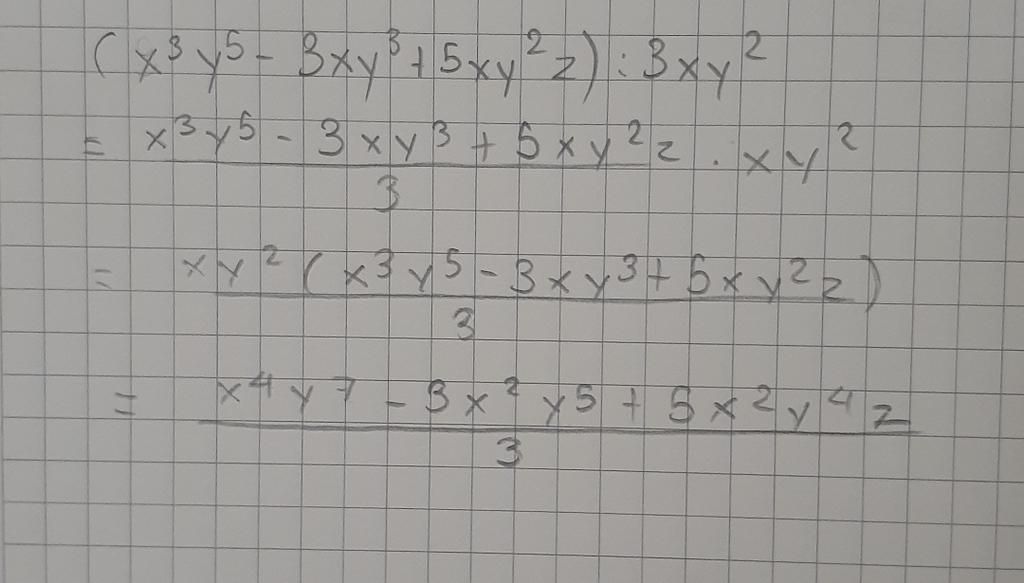 (x³y⁵ - 3xy³ + 5xy²z) : 3xy²
= x³y⁵ - 3xy³ + 5xy²z / 3 · xy²
= xy²(x³y⁵ - 3xy³ + 5xy²z) / 3
= x⁴y⁷ - 3x²y⁵ + 5x²y⁴z / 3